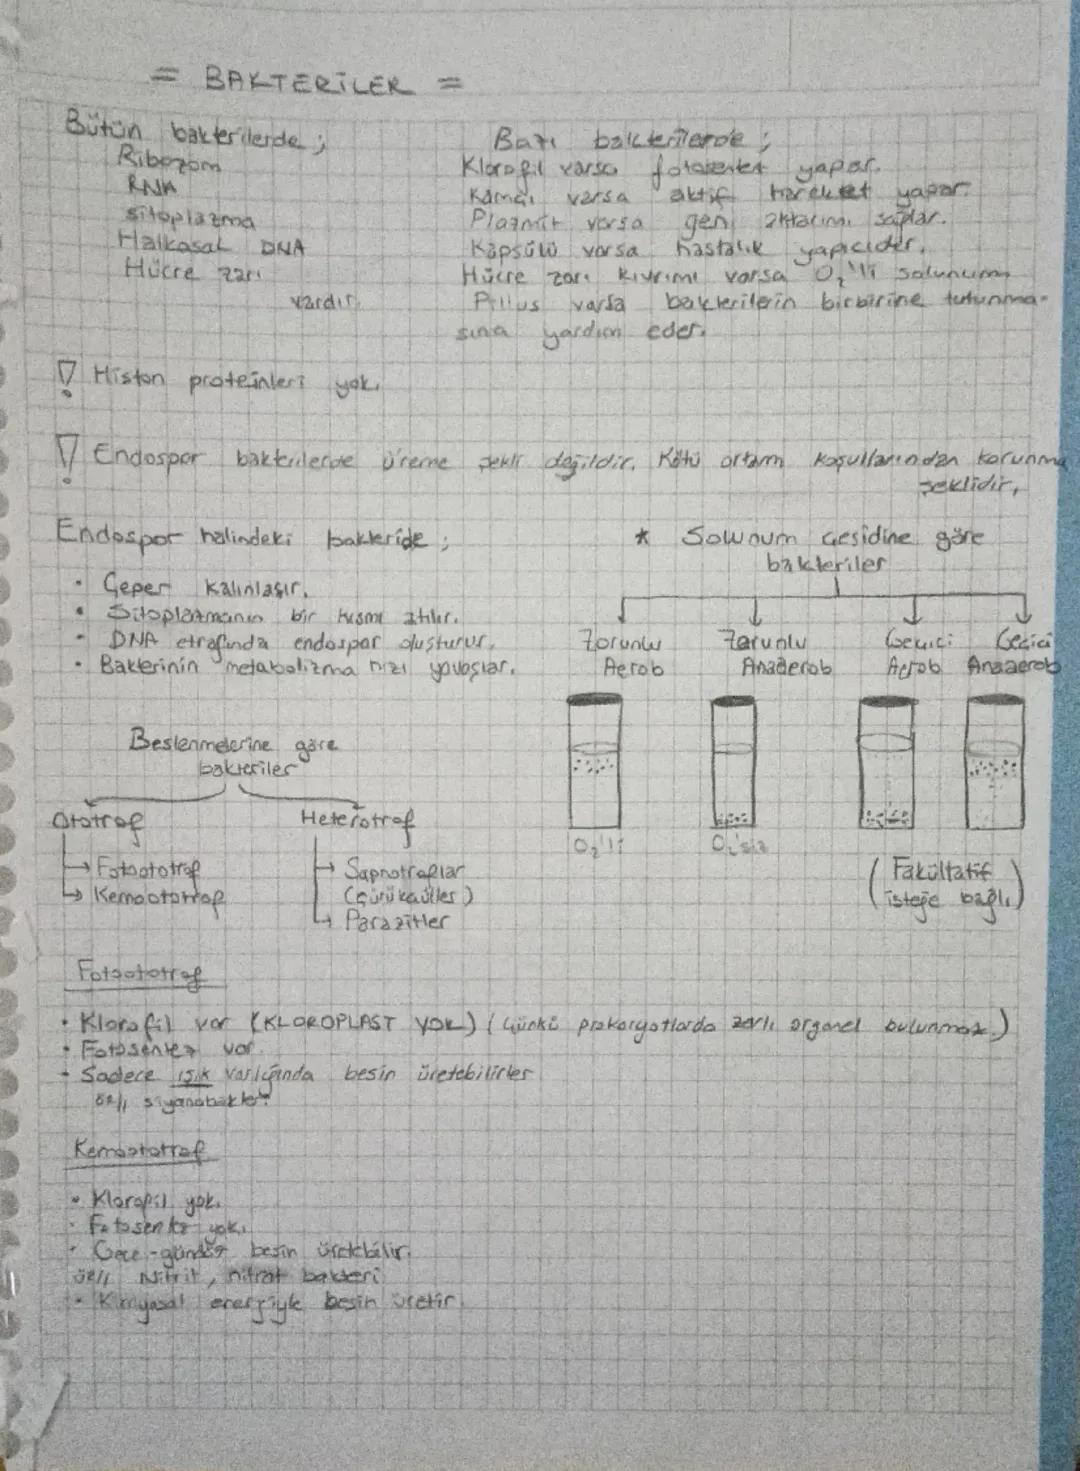 = BAKTERİLER =
Bütün bakterilerde ;
Ribozom
RNA
sitoplazma
Halkasal DNA
Hücre zarı
vardır.
Bazı bakterilerde ;
Klorofil varsa fotosentez yapar.
Kamçı varsa aktif hareket yapar.
Plazmit varsa gen aktarımı sağlar.
Kapsülü varsa hastalık yapıcıdır.
Hücre zarı kıvrımı varsa O₂'li solunum
Pillus varsa bakterilerin birbirine tutunma-
sına yardım eder.
Histon proteinleri yok.
Endospor bakterilerde üreme şekli değildir. Kötü ortam koşullarından korunma
şeklidir.
Endospor halindeki bakteride ;
• Çeper kalınlaşır.
• Sitoplazmanın bir kısmı atılır.
• DNA etrafında endospor oluşturur.
• Bakterinin metabolizma hızı yavaşlar.
* Solunum çeşidine göre
bakteriler
Zorunlu Aerob
Zorunlu Anaerob
Geçici Aerob
Geçici Anaaerob
O₂'li
O₂'siz
( Fakültatif
isteğe bağlı )
Beslenmelerine göre
bakteriler
Ototrof
→ Fotoototrof
→ Kemoototrof
Heterotrof
→ Saprotroflar
(çürükçüller)
→ Parazitler
Fotoototrof
• Klorofil var (KLOROPLAST YOK) (Çünkü prokaryotlarda zarlı organel bulunmaz.)
• Fotosentez var.
• Sadece ışık varlığında besin üretebilirler
ör// siyanobakter
Kemoototrof
• Klorofil yok.
• Fotosentez yok.
• Gece-gündüz besin üretebilir.
ör// Nitrit, nitrat bakteri
• Kimyasal enerjiyle besin üretir.